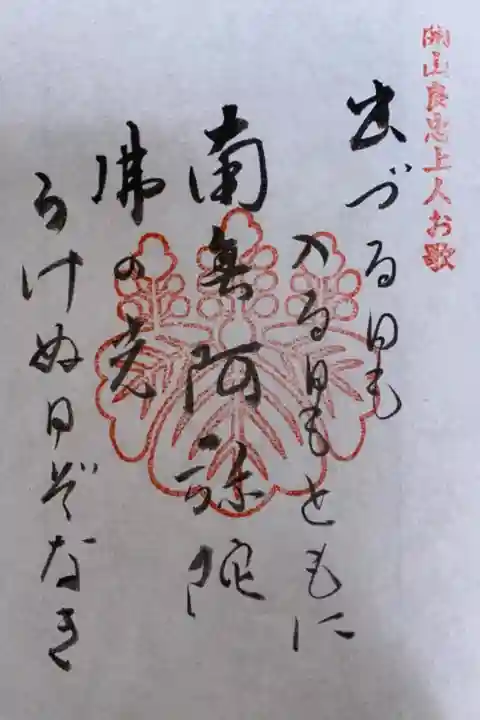 開山良忠上人お歌
出づる日も
入る日もともに
南無阿弥陀
佛の光
うけぬ日ぞなき